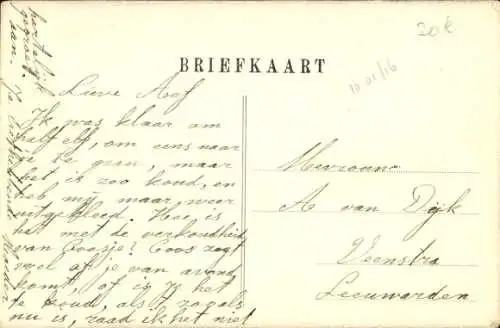 20€
BRIEFKAART
10/01/16
Lieve Aaf
Ik was klaar om
half elf, om eens naar
je te gaan, maar
het is zoo koud, en
heb mij maar weer
uitgekleed. Hoe is
het met de verkoudheid
van Coosje? Coos zegt
wel of je van avond
komt, of is je het
te koud, als t zoo als
nu is, raad ik het niet
aan. Je liefhebbende Moeder
hartelijk
gegroet
Mevrouw
A van Dijk
Veenstra
Leeuwarden